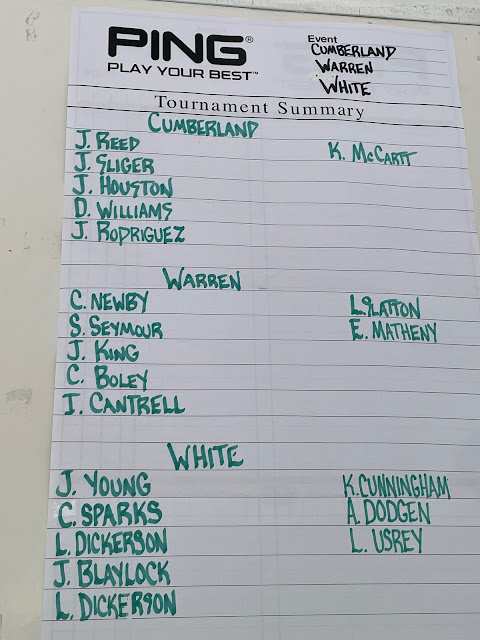 PING®
PLAY YOUR BEST™
Event
CUMBERLAND
WARREN
WHITE
Tournament Summary
CUMBERLAND
J. REED
K. MCCARTT
J. SLIGER
J. HOUSTON
D. WILLIAMS
J. RODRIGUEZ
WARREN
C. NEWBY
L. GLATTON
S. SEYMOUR
E. MATHENY
J. KING
C. BOLEY
I. CANTRELL
WHITE
J. YOUNG
K. CUNNINGHAM
C. SPARKS
A. DODGEN
L. DICKERSON
L. USREY
J. BLAYLOCK
L. DICKERSON